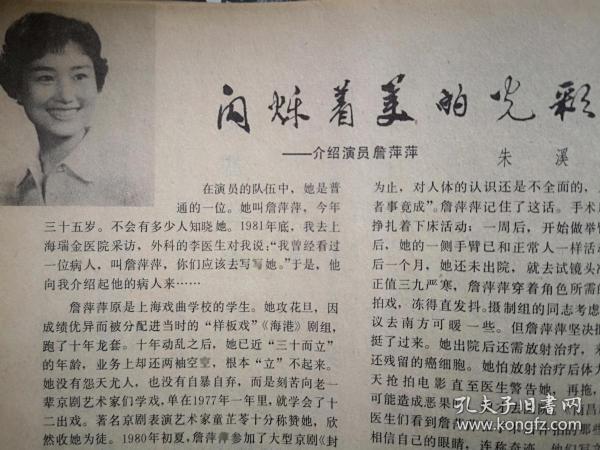 闪烁着美的光彩
——介绍演员詹萍萍
朱 溪
在演员的队伍中，她是普
通的一位。她叫詹萍萍，今年
三十五岁。不会有多少人知晓她。1981年底，我去上
海瑞金医院采访，外科的李医生对我说：“我曾经看过
一位病人，叫詹萍萍，你们应该去写写她。”于是，他
向我介绍起他的病人来……
詹萍萍原是上海戏曲学校的学生。她攻花旦，因
成绩优异而被分配进当时的“样板戏”《海港》剧组，
跑了十年龙套。十年动乱之后，她已近“三十而立”
的年龄，业务上却还两袖空空，根本“立”不起来。
她没有怨天尤人，也没有自暴自弃，而是刻苦向老一
辈京剧艺术家们学戏，单在1977年一年里，就学会了十
二出戏。著名京剧表演艺术家童芷苓十分称赞她，欣
然收她为徒。1980年初夏，詹萍萍参加了大型京剧《封
为止，对人体的认识还是不全面的，
者事竟成”。詹萍萍记住了这话。手术
挣扎着下床活动：一周后，开始做举臂
后，她的一侧手臂已和正常人一样活动
后一个月，她还未出院，就去试镜头
正值三九严寒，詹萍萍穿着角色所需的
拍戏，冻得直发抖。摄制组的同志考虑
议去南方可暖一些。但詹萍萍坚决
挺了过来。她出院后还需放射治疗，
还残留的癌细胞。她怕放射治疗后体
天抢拍电影直至医生警告她，再拖，
可能造成恶果
医生们看到詹
相信自己的眼睛，连称奇迹，他们
孔夫子旧书网
www.kongfz.com